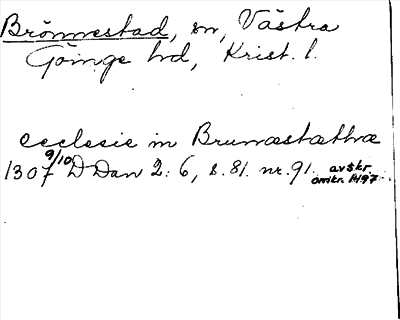 Brönnestad, sn, Västra
Göinge hd, Krist. l.
ecclesie in Brunæstæthæ
1307 9/10 DDan 2:6, s.81. nr.91. avskr
omkr. 1497